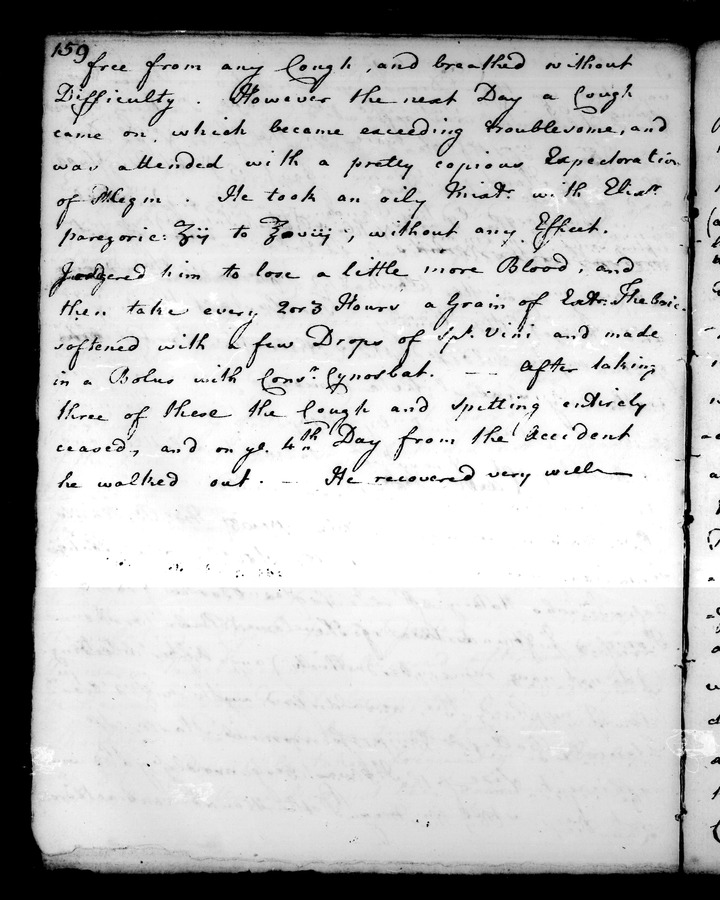 159
free from any Cough, and breathed without
Difficulty. However the next Day a Cough
came on, which became exceeding troublesome, and
was attended with a pretty copious Expectoration
of Phlegm. He took an oily Mixtr. with Elixr
paregoric: ʒij to ℥viij; without any Effect.
I ordered him to lose a little more Blood, and
then take every 2 or 3 Hours a Grain of Extr. Thebaic.
softened with a few Drops of Spt. Vini and made
in a Bolus with Consr. Cynosbat. — — After taking
three of these the Cough and spitting entirely
ceased, and on ye. 4th Day from the Accident
he walked out. — He recovered very well